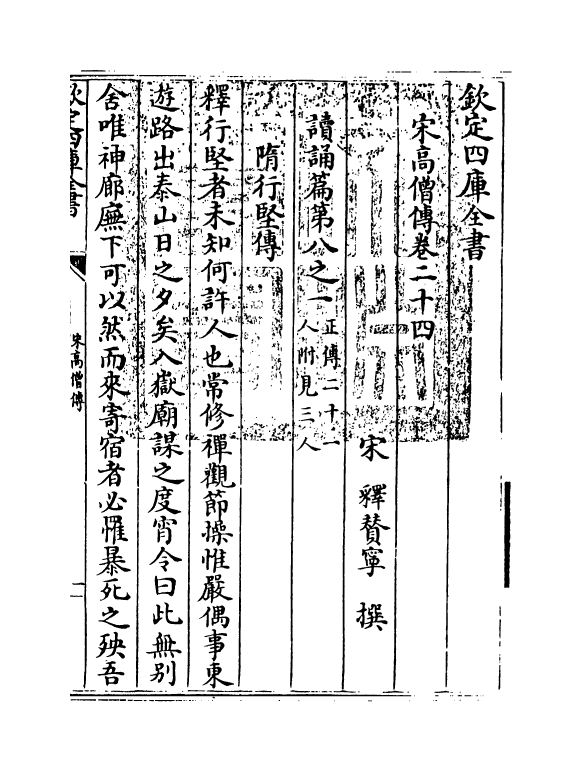 欽定四庫全書
宋高僧傳卷二十四
宋 釋贊寧 撰
讀誦篇第八之一正傳二十一
人附見三人
隋行堅傳
釋行堅者未知何許人也常修禪觀節操惟嚴偶事東
遊路出泰山日之夕矣入嶽廟謀之度宵令曰此無別
舍唯神廊廡下可以然而來寄宿者必罹暴死之殃吾
欽定四庫全書
宋高僧傳
一